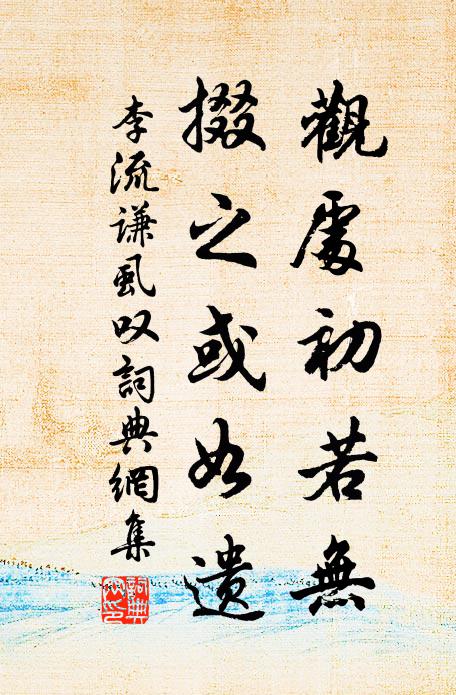 觀處初若無
掇之或如遺
李流謙虱叹詞典網集